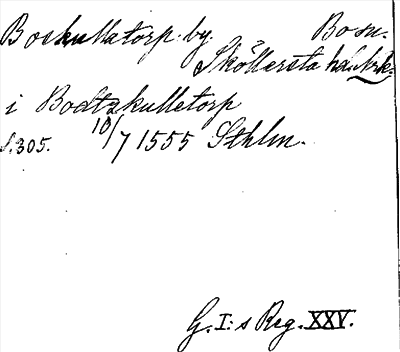 Boskullatorp by. Bosn.
Sköllersta hd. Nrk.
i Bodtzkulletorp
s. 305. 10/7 1555 Sthlm.
G. I:s Reg. XXV.